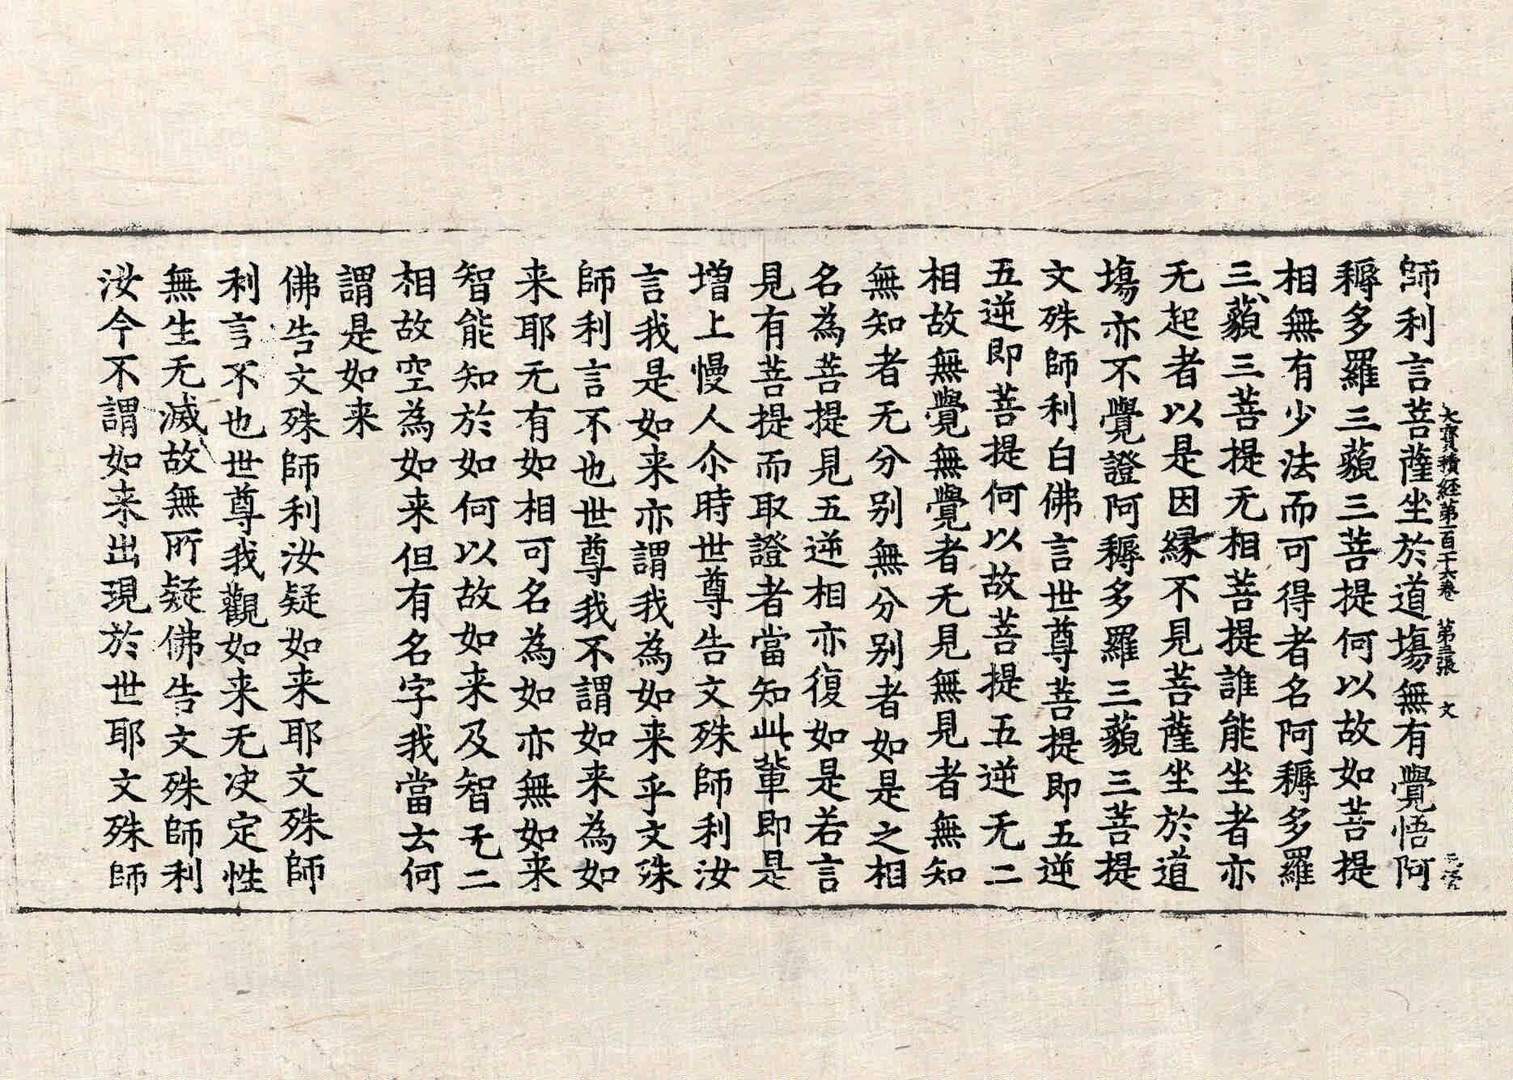 大寶積経第一百十六卷 第五張 文
師利言菩薩坐於道場無有覺悟阿
耨多羅三藐三菩提何以故如菩提
相無有少法而可得者名阿耨多羅
三藐三菩提无相菩提誰能坐者亦
无起者以是因縁不見菩薩坐於道
場亦不覺證阿耨多羅三藐三菩提
文殊師利白佛言世尊菩提即五逆
五逆即菩提何以故菩提五逆无二
相故無覺無覺者无見無見者無知
無知者无分别無分别者如是之相
名為菩提見五逆相亦復如是若言
見有菩提而取證者當知此輩即是
增上慢人尒時世尊告文殊師利汝
言我是如来亦謂我為如来乎文殊
師利言不也世尊我不謂如来為如
来耶无有如相可名為如亦無如来
智能知於如何以故如来及智无二
相故空為如来但有名字我當云何
謂是如来
佛告文殊師利汝疑如来耶文殊師
利言不也世尊我觀如来无决定性
無生无滅故無所疑佛告文殊師利
汝今不謂如来出現於世耶文殊師